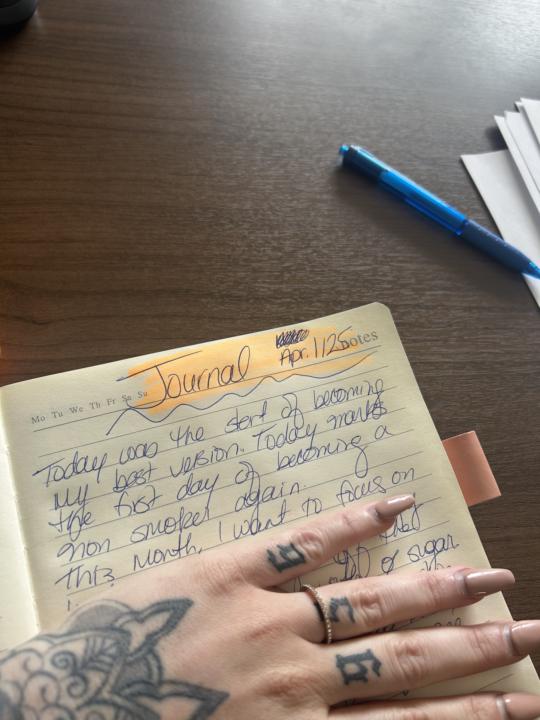 Journal Apr. 1/25 Notes
Mo Tu We Th Fr Sa Su
Today was the start of becoming
My best version. Today marks
the first day of becoming a
non smoker again.
This Month, I want to focus on
1.
that
of sugar